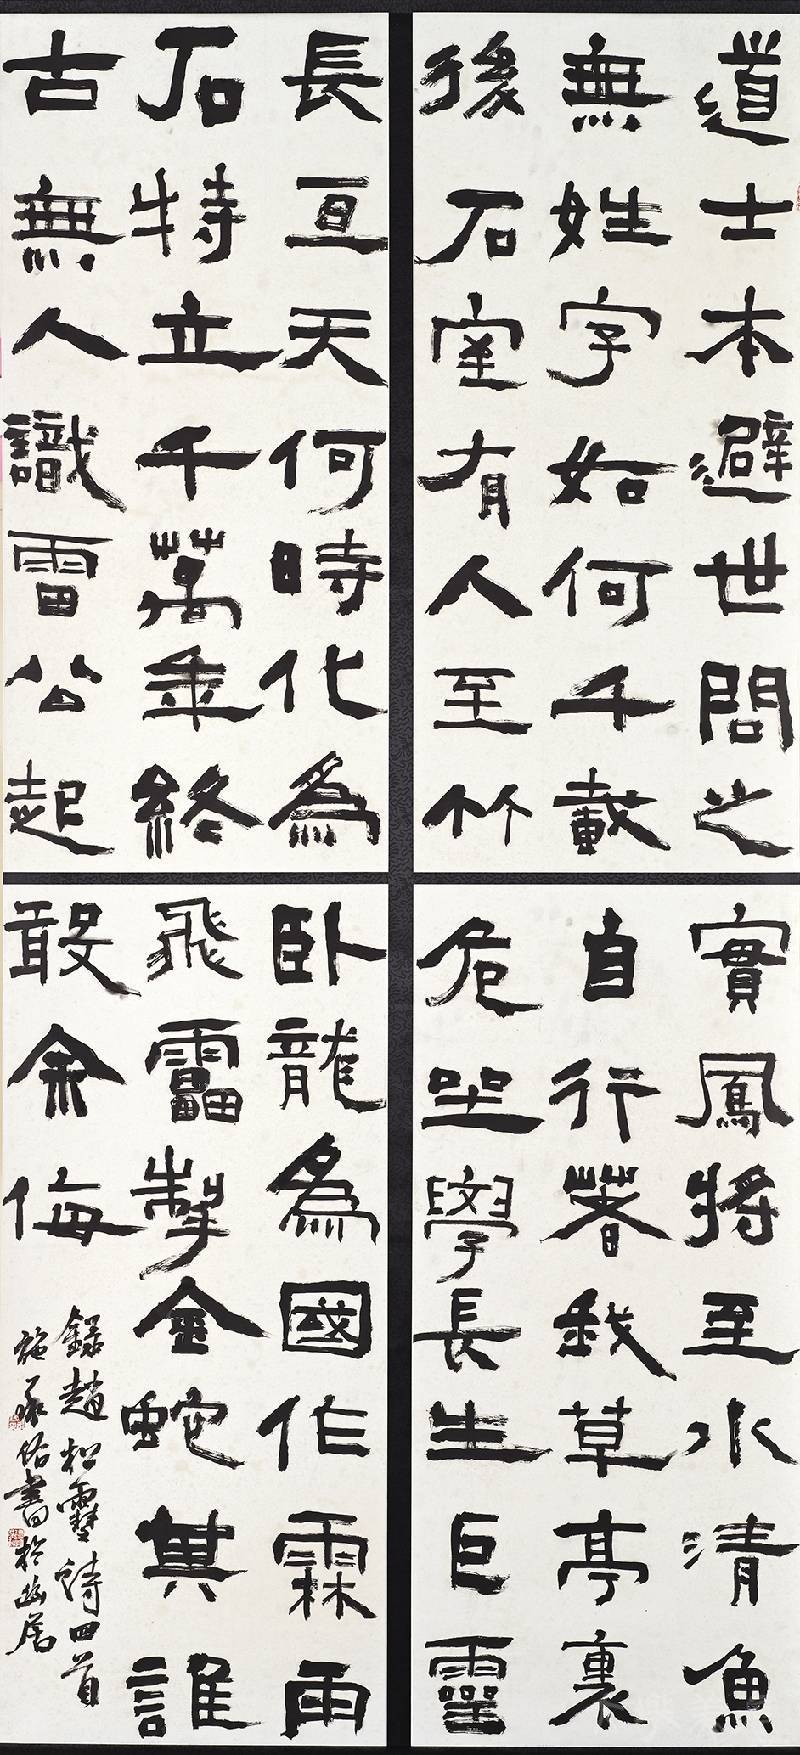 道士本避世問之
無姓字如何千載
後石室有人至竹
實鳳將至水清魚
自行著我草亭裏
危坐學長生巨靈
長亙天何時化為
石特立千萬年終
古無人識雷公起
臥龍為國作霖雨
飛靁掣金蛇其誰
敢余侮
錄趙松雪詩四首
施承書於幽居